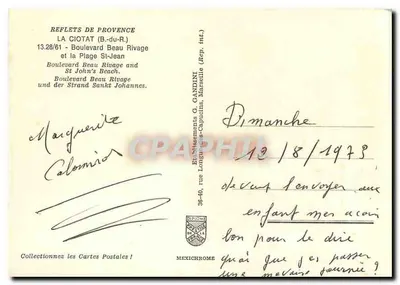 REFLETS DE PROVENCE
LA CIOTAT (B.-du-R.)
13.28/61 - Boulevard Beau Rivage
et la Plage St-Jean
Boulevard Beau Rivage and
St John's Beach.
Boulevard Beau Rivage
und der Strand Sankt Johannes.
Marguerite
Colomiros
Collectionnez les Cartes Postales !
Etablissements G. GANDINI
36-40, rue Longue-des-Capucins, Marseille (Rep. ind.)
MEXICHROME
CPAPHIL
Dimanche
12/8/1973
devant l'envoyer aux
enfant mes
bon pour le dire
quoi que passer
une mauvaise journée ?